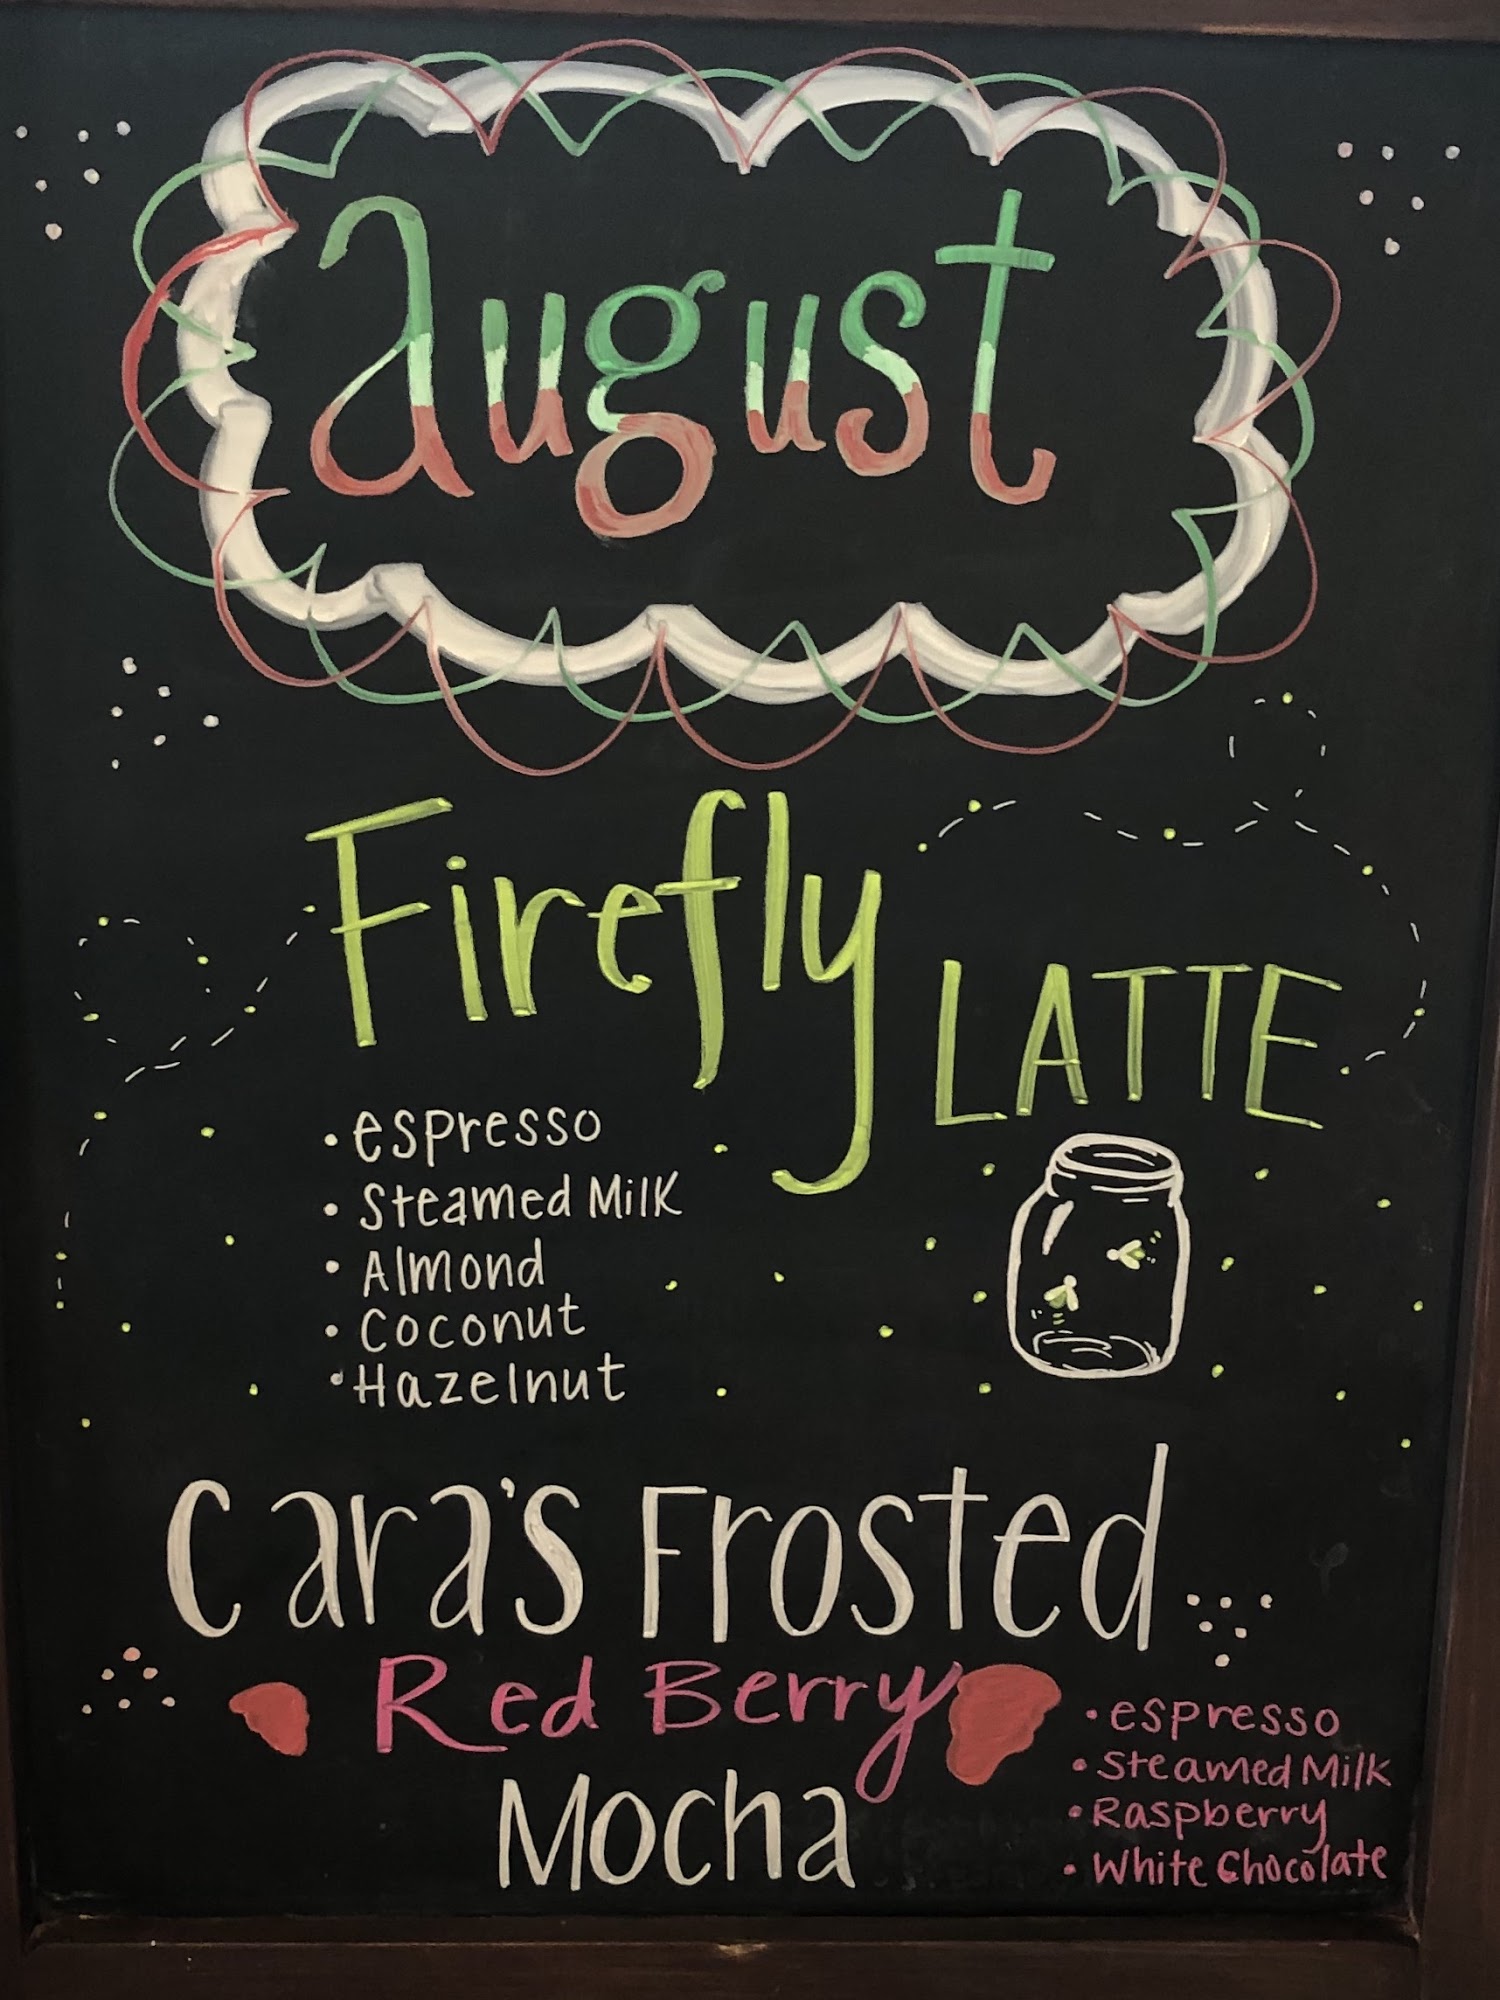 august
Firefly
LATTE
• espresso
• Steamed Milk
• Almond
• Coconut
• Hazelnut
Cara's Frosted
Red Berry
Mocha
• espresso
• Steamed Milk
• Raspberry
• White Chocolate